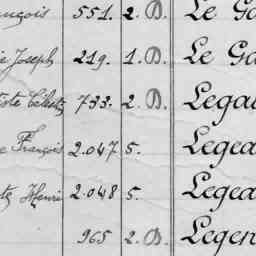 ançois 551. 2. D. Le Ga
e Joseph 219. 1. D. Le Ga
iste Célest 733. 2. D. Legal
e François 2.047 5. Legea
te Henri 2.048 5. Legea
965 2. D. Legen